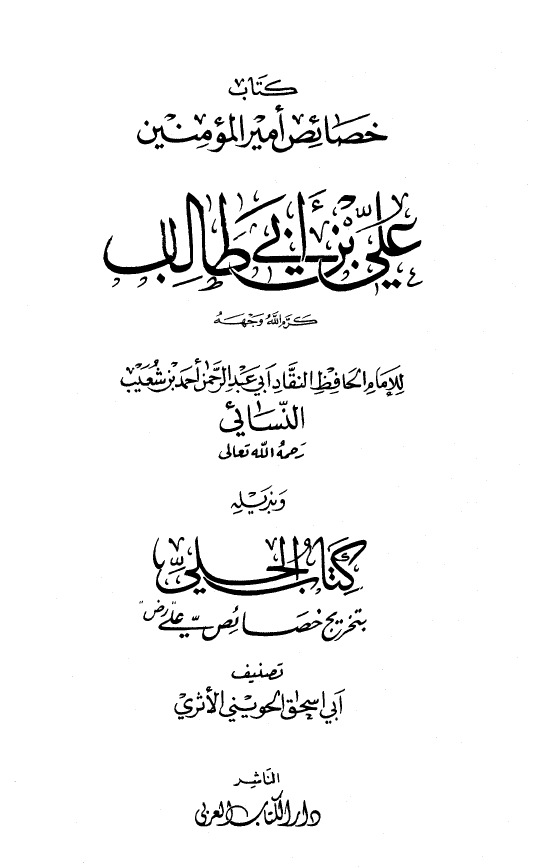 كتاب
خصائص أمير المؤمنين
علي بن أبي طالب
كرم الله وجهه
للإمام الحافظ النقاد أبي عبد الرحمن أحمد بن شعيب
النسائي
رحمه الله تعالى
وبذيله
كتاب الحلي
بتخريج خصائص علي "رض"
تصنيف
أبي إسحق الحويني الأثري
الناشر
دار الكتاب العربي